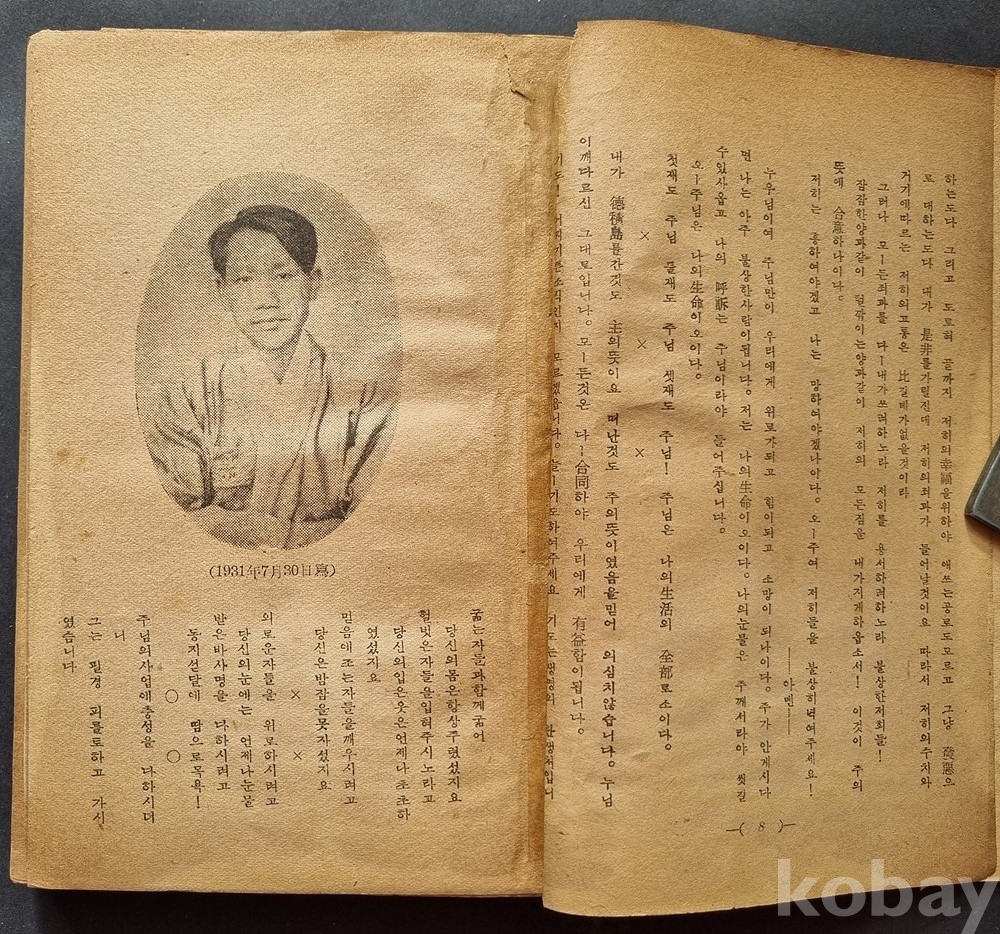 하는도다 그리고 도로혀 끝까지 저희의幸福을위하야 애쓰는공로도모르고 그냥 發惡으
로 대하는도다 내가 是非를가릴진데 저희의죄과가 들어날것이요 따라서 저희의수치와
거기에따르는 저희의고통은 比길데가없을것이라
그러나 모ー든죄과를 다ー내가쓰려하노라 저희를 용서하려하노라 불상한저희들!
잠잠한양과같이 털깎이는양과같이 저희의 모든짐을 내가지게하옵소서! 이것이 주의
뜻에 合意하나이다。
저희는 흥하여야겠고 나는 망하여야겠나이다。오ー주여 저희들을 불상히녁여주세요!
아멘
누우님이여 주님만이 우리에게 위로가되고 힘이되고 소망이 되나이다。주가 안게시다
면 나는 아주 불상한사람이됩니다。저는 나의生命이오이다。나의눈물은 주께서라야 씻길
수있사옵고 나의 呼訴는 주님이라야 들어주십니다。
오ー주님은 나의生命이오이다。
첫재도 주님 둘재도 주님 셋재도 주님! 주님은 나의生活의 全部로소이다。
× × ×
내가 德積島를간것도 主의뜻이요 떠난것도 주의뜻이였음을믿어 의심치않습니다。누님
이깨다르신 그대로입니다。모ー든것은 다ー合同하야 우리에게 有益함이됩니다。
모르겠읍니다。
—( 8 )—
(1931年7月30日寫)
굶는자들과함께굶어
당신의몸은항상주렸섰지요
헐벗은자들을입혀주시노라고
당신의입은옷은언제나초초하
였섰지요
믿음에조는자들을깨우시려고
당신은밤잠을못자섰지요
× ×
외로운자들을 위로하시려고
당신의눈에는 언제나눈물
받은바사명을 다하시려고
동지섣달에 땀으로목욕!
○ ○
주님의사업에충성을 다하시더
니
그는 필경 피를토하고 가시
였습니다
kobay